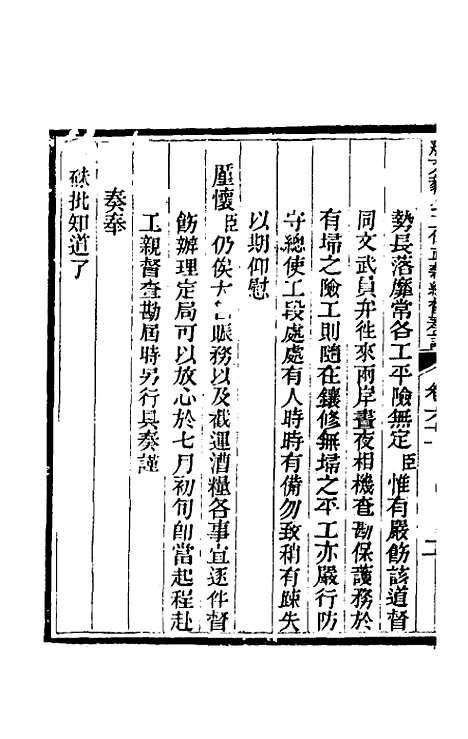 勢長落靡常各工平險無定臣惟有嚴飭該道督
同文武員弁往來兩岸晝夜相機查勘保護務於
有埽之險工則隨在鑲修無埽之平工亦嚴行防
守總使工段處處有人時時有備勿致稍有疎失
以期仰慰
厪懷臣仍俟大名賑務以及截運漕糧各事宜逐件督
飭辦理定局可以放心於七月初旬卽當起程赴
工親督查勘屆時另行具奏謹
奏奉
硃批知道了